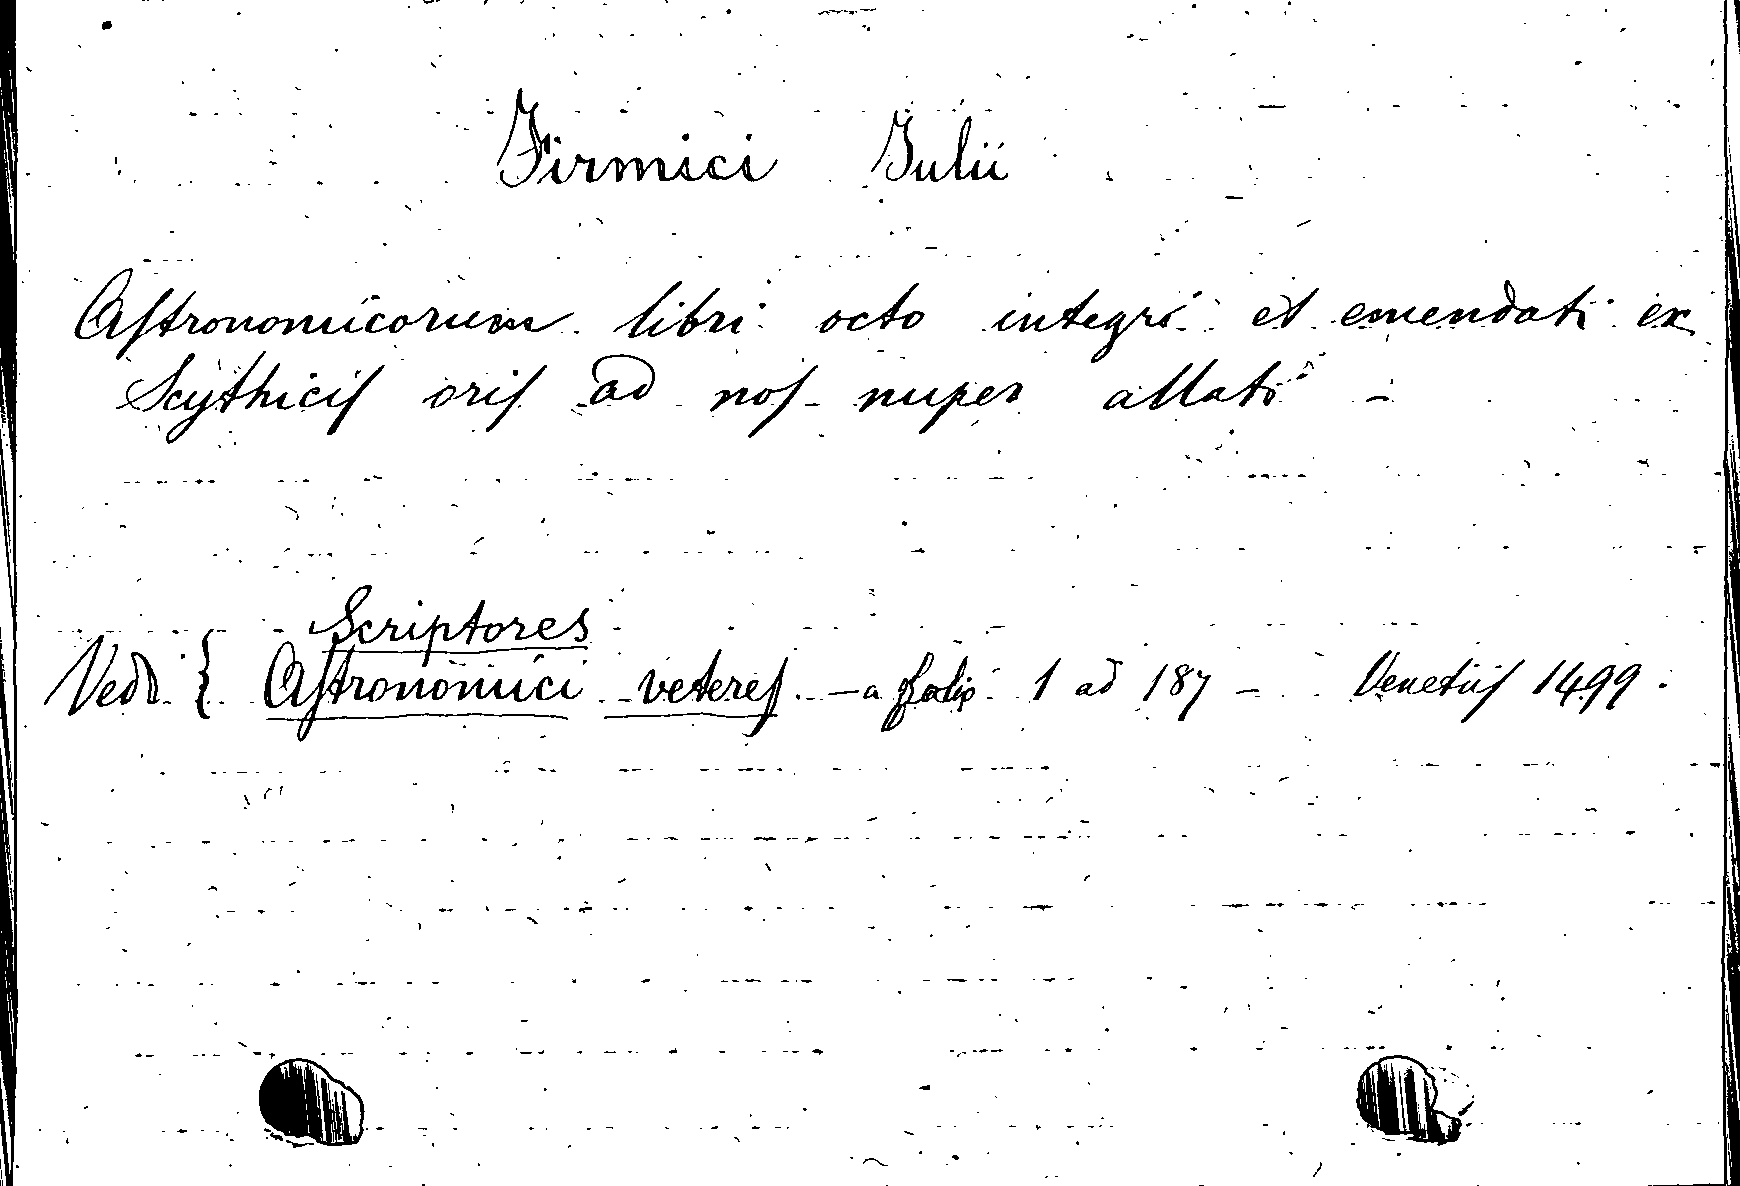 Firmici Julii
Aſtronomicorum libri octo integri et emendati ex
Scythiciſ oriſ ad noſ nuper allati -
Scriptores
Vedi { Aſtronomici vetereſ - a folio 1 ad 187 - Venetiiſ 1499.